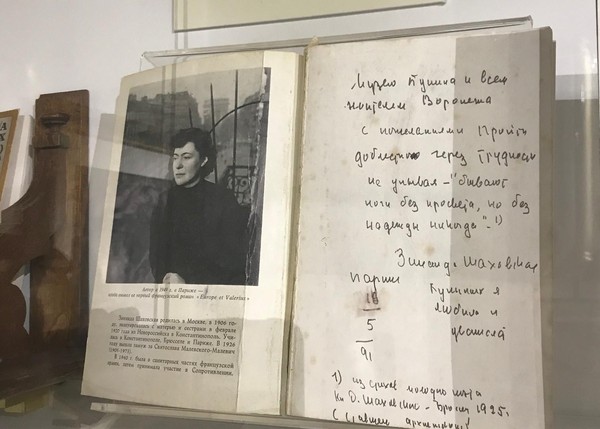 автор в 1949 г. в Париже —
когда вышел ее первый французский роман «Europe et Valerius»
Зинаида Шаховская родилась в Москве, в 1906 го-
ду, эвакуировалась с матерью и сестрами в феврале
1920 года из Новороссийска в Константинополь. Учи-
лась в Константинополе, Брюсселе и Париже. В 1926
году вышла замуж за Святослава Малевского-Малевич
(1905-1973).
В 1940 г. была в санитарных частях французской
армии, затем принимала участие в Сопротивлении,
Музею Бунина и всем
жителям Воронежа
с пожеланиями пройти
доблестно через трудности
не унывая - "бывают
ночи без просвета, но без
надежды никогда". 1)
Зинаида Шаховская
Париж
Бунина я
любила и
5
91
1) из стихов молодого поэта
Кн Д. Шаховского - Брюссель 1925г.